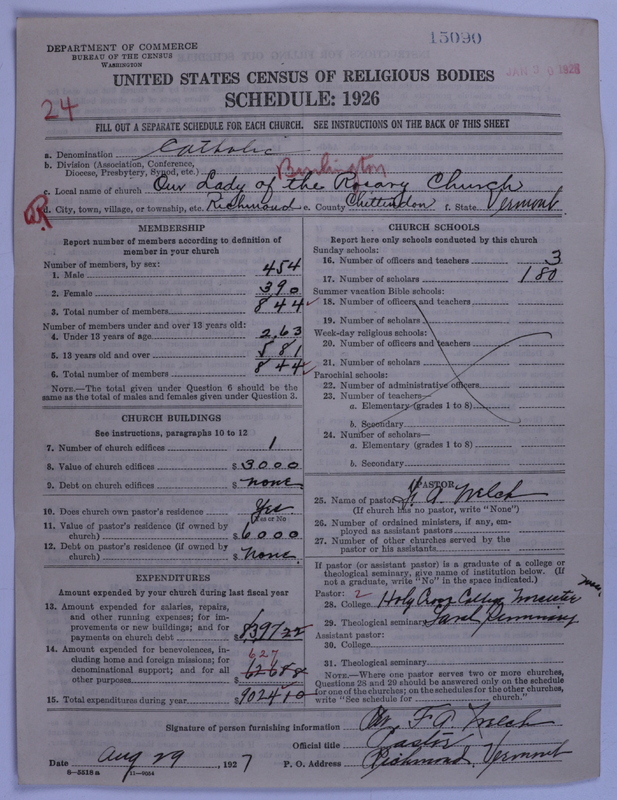 15090
DEPARTMENT OF COMMERCE
BUREAU OF THE CENSUS
WASHINGTON
UNITED STATES CENSUS OF RELIGIOUS BODIES
SCHEDULE: 1926
24
FILL OUT A SEPARATE SCHEDULE FOR EACH CHURCH. SEE INSTRUCTIONS ON THE BACK OF THIS SHEET
a. Denomination Catholic
b. Division (Association, Conference, Diocese, Presbytery, Synod, etc.) Burlington
c. Local name of church Our Lady of the Rosary Church
d. City, town, village, or township, etc. Richmond e. County Chittendon f. State Vermont
MEMBERSHIP
Report number of members according to definition of member in your church
Number of members, by sex:
1. Male 454
2. Female 390
3. Total number of members 844
Number of members under and over 13 years old:
4. Under 13 years of age 263
5. 13 years old and over 581
6. Total number of members 844
NOTE.—The total given under Question 6 should be the same as the total of males and females given under Question 3.
CHURCH BUILDINGS
See instructions, paragraphs 10 to 12
7. Number of church edifices 1
8. Value of church edifices $ 3000
9. Debt on church edifices $ none
10. Does church own pastor's residence Yes
(Yes or No
11. Value of pastor's residence (if owned by church) $ 6000
12. Debt on pastor's residence (if owned by church) $ none
EXPENDITURES
Amount expended by your church during last fiscal year
13. Amount expended for salaries, repairs, and other running expenses; for improvements or new buildings; and for payments on church debt $ 8397 22
14. Amount expended for benevolences, including home and foreign missions; for denominational support; and for all other purposes 627
626 88
15. Total expenditures during year $ 9024 10
CHURCH SCHOOLS
Report here only schools conducted by this church
Sunday schools:
16. Number of officers and teachers 3
17. Number of scholars 180
Summer vacation Bible schools:
18. Number of officers and teachers
19. Number of scholars
Week-day religious schools:
20. Number of officers and teachers
21. Number of scholars
Parochial schools:
22. Number of administrative officers
23. Number of teachers—
a. Elementary (grades 1 to 8)
b. Secondary
24. Number of scholars—
a. Elementary (grades 1 to 8)
b. Secondary
PASTOR
25. Name of pastor F. A. Welch
(If church has no pastor, write "None")
26. Number of ordained ministers, if any, employed as assistant pastors
27. Number of other churches served by the pastor or his assistants
If pastor (or assistant pastor) is a graduate of a college or theological seminary, give name of institution below. (If not a graduate, write "No" in the space indicated.)
Pastor: 2
28. College Holy Cross College Worcester Mass.
29. Theological seminary Laval Seminary
Assistant pastor:
30. College
31. Theological seminary
NOTE.—Where one pastor serves two or more churches, Questions 28 and 29 should be answered only on the schedule for one of the churches; on the schedules for the other churches, write "See schedule for church."
Signature of person furnishing information F. A. Welch
Official title Pastor
Date Aug 29, 1927 P. O. Address Richmond, Vermont
6—5518 a 11—9054